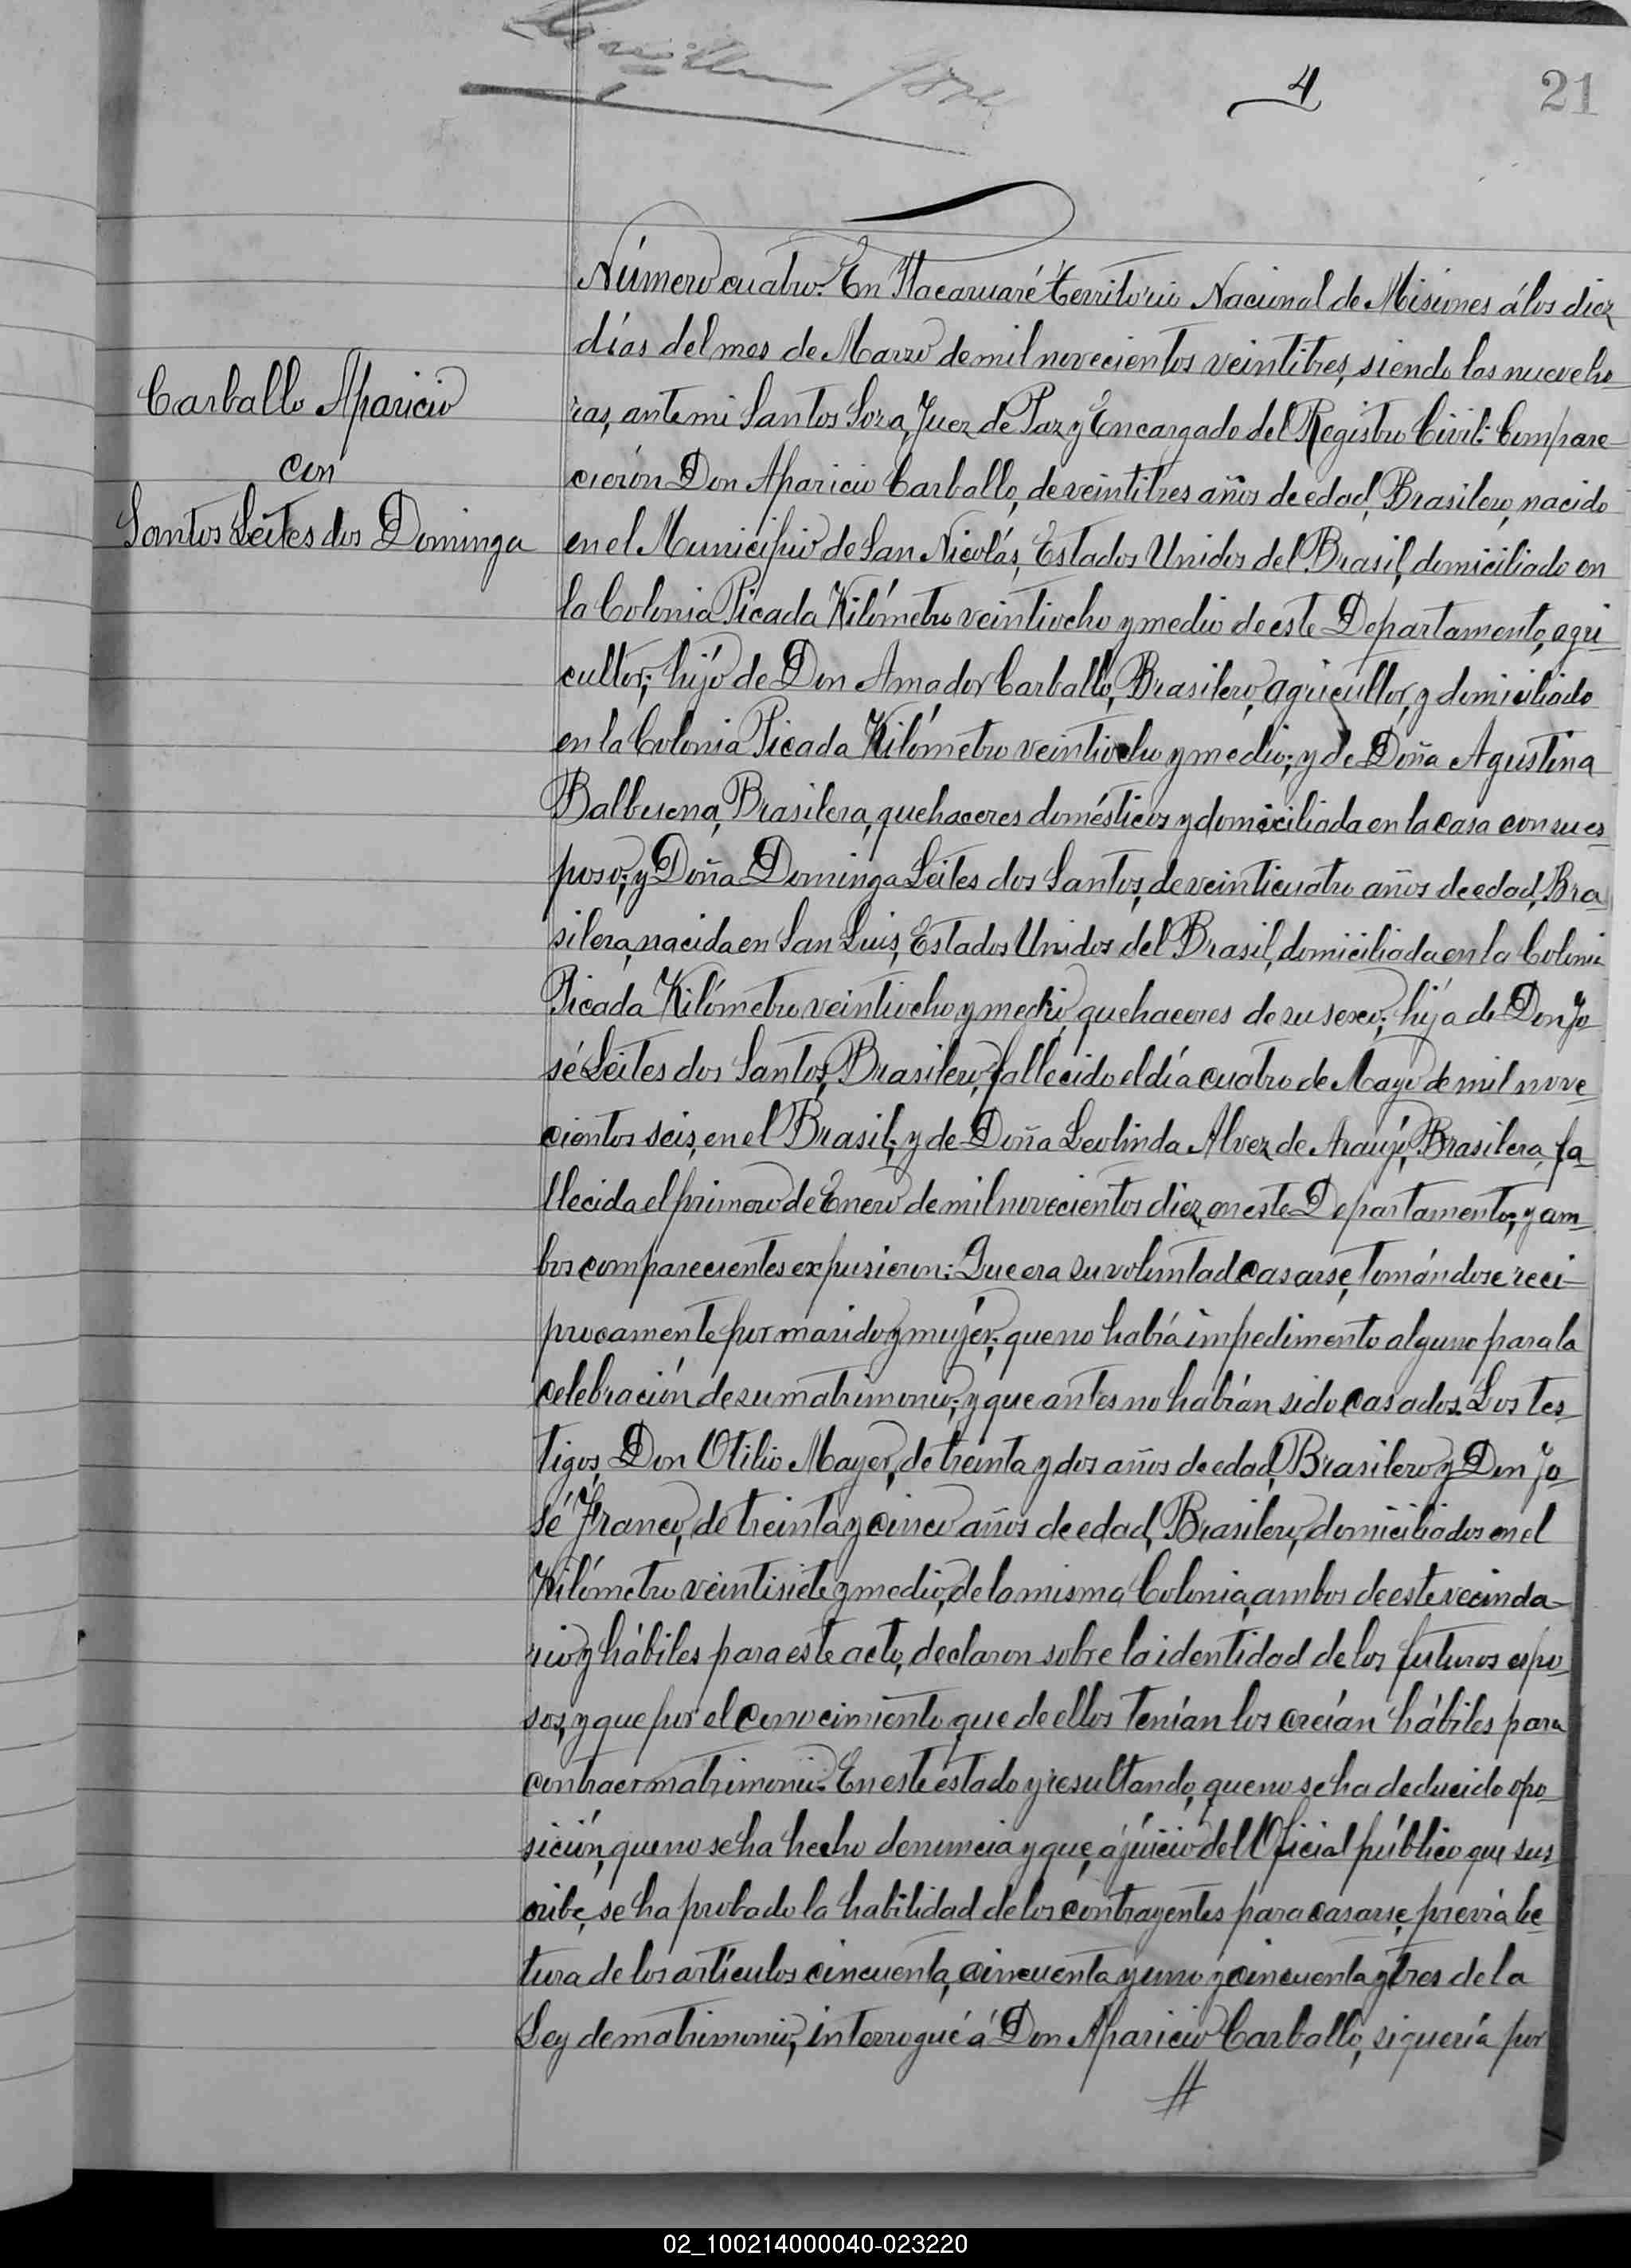 4
21
Carballo Aparicio
con
Santos Leites dos Dominga
Número cuatro. En Itacaruaré Territorio Nacional de Misiones á los diez
días del mes de Marzo de mil novecientos veintitres, siendo las nueve ho-
ras, ante mi Santos Sosa, Juez de Paz y Encargado del Registro Civil: Compare-
cieròn Don Aparicio Carballo, de veintitres años de edad, Brasilero, nacido
en el Municipio de San Nicolás, Estados Unidos del Brasil, domiciliado en
la Colonia Picada Kilómetro veintiocho y medio de este Departamento, agri-
cultor; hijo de Don Amador Carballo, Brasilero, agricultor, y domiciliado
en la Colonia Picada Kilómetro veintiocho y medio; y de Doña Agustina
Balbuena, Brasilera, quehaceres domésticos y domiciliada en la casa con su es-
poso; y Doña Dominga Leites dos Santos, de veinticuatro años de edad, Bra-
silera, nacida en San Luis, Estados Unidos del Brasil, domiciliada en la Colonia
Picada Kilómetro veintiocho y medio, quehaceres de su sexo; hija de Don Jo-
sé Leites dos Santos, Brasilero, fallecido el día cuatro de Mayo de mil nove-
cientos seis, en el Brasil; y de Doña Leolinda Alvez de Araujo, Brasilera, fa-
llecida el primero de Enero de mil novecientos diez, en este Departamento; y am-
bos comparecientes expusieron: Que era su voluntad casarse, tomándose reci-
procamente por marido y mujer; que no había impedimento alguno para la
celebración de su matrimonio; y que antes no habían sido casados. Los tes-
tigos, Don Otilio Mayer, de treinta y dos años de edad, Brasilero y Don Jo-
sé Franco, de treinta y cinco años de edad, Brasilero, domiciliados en el
Kilómetro veintisiete y medio, de la misma Colonia, ambos de este vecinda-
rio y hábiles para este acto, declaron sobre la identidad de los futuros espo-
sos, y que por el conocimiento que de ellos tenían los creían hábiles para
contraer matrimonio. En este estado y resultando, que no se ha deducido opo-
sición, que no se ha hecho denuncia y que, á juicio del Oficial público que sus-
cribe, se ha probado la habilidad de los contrayentes para casarse, previa lec-
tura de los artículos cincuenta, cincuenta y uno y cincuenta y tres de la
Ley de matrimonio, interrogué á Don Aparicio Carballo, si quería por
//
02_100214000040-023220